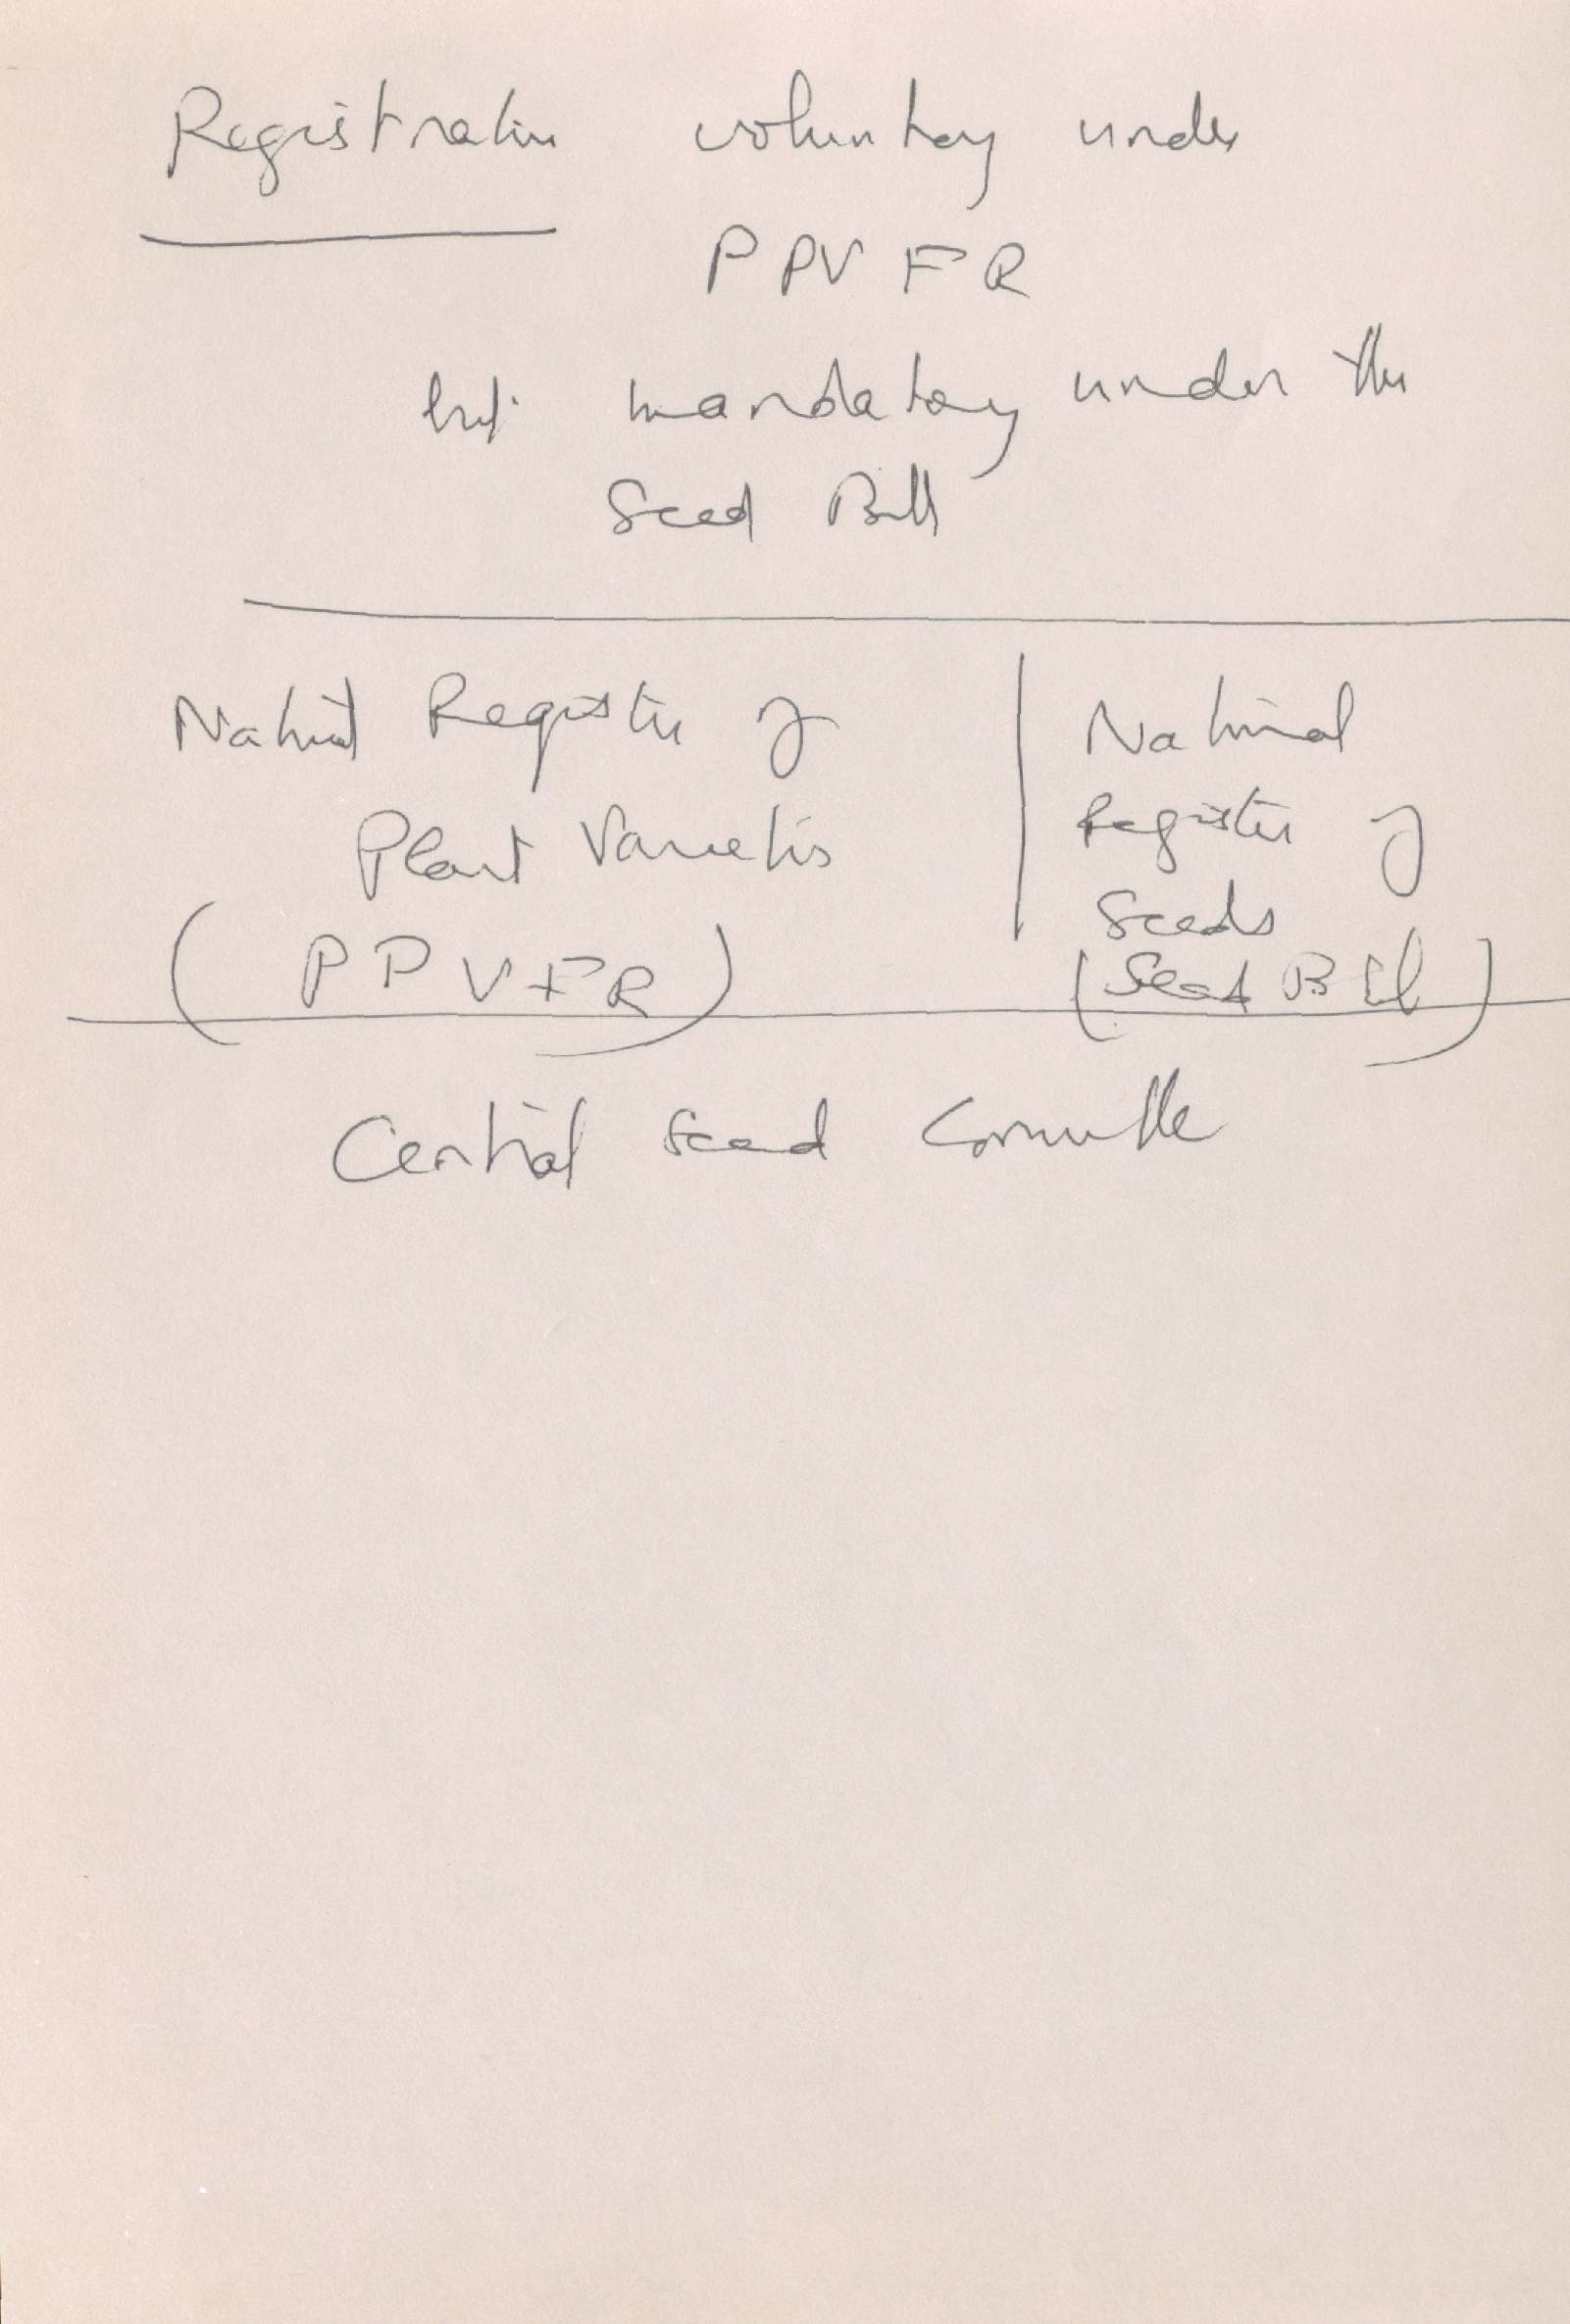 Registration voluntary under
PPVFR
but mandatory under the
Seed Bill
National Register of
Plant Varieties
(PPVFR)
National
Register of
Seeds
(Seed Bill)
Central Seed Committee